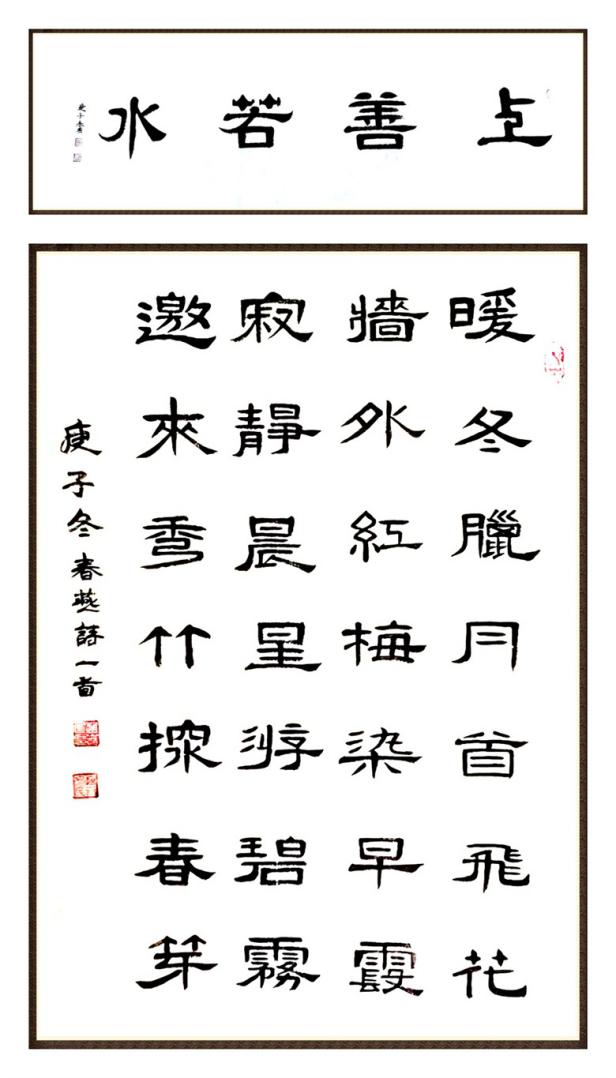 上善若水
暖冬臘月首飛花
牆外紅梅染早霞
寂靜晨星游碧霧
邀來秀竹探春笌
庚子冬春燕詩一首